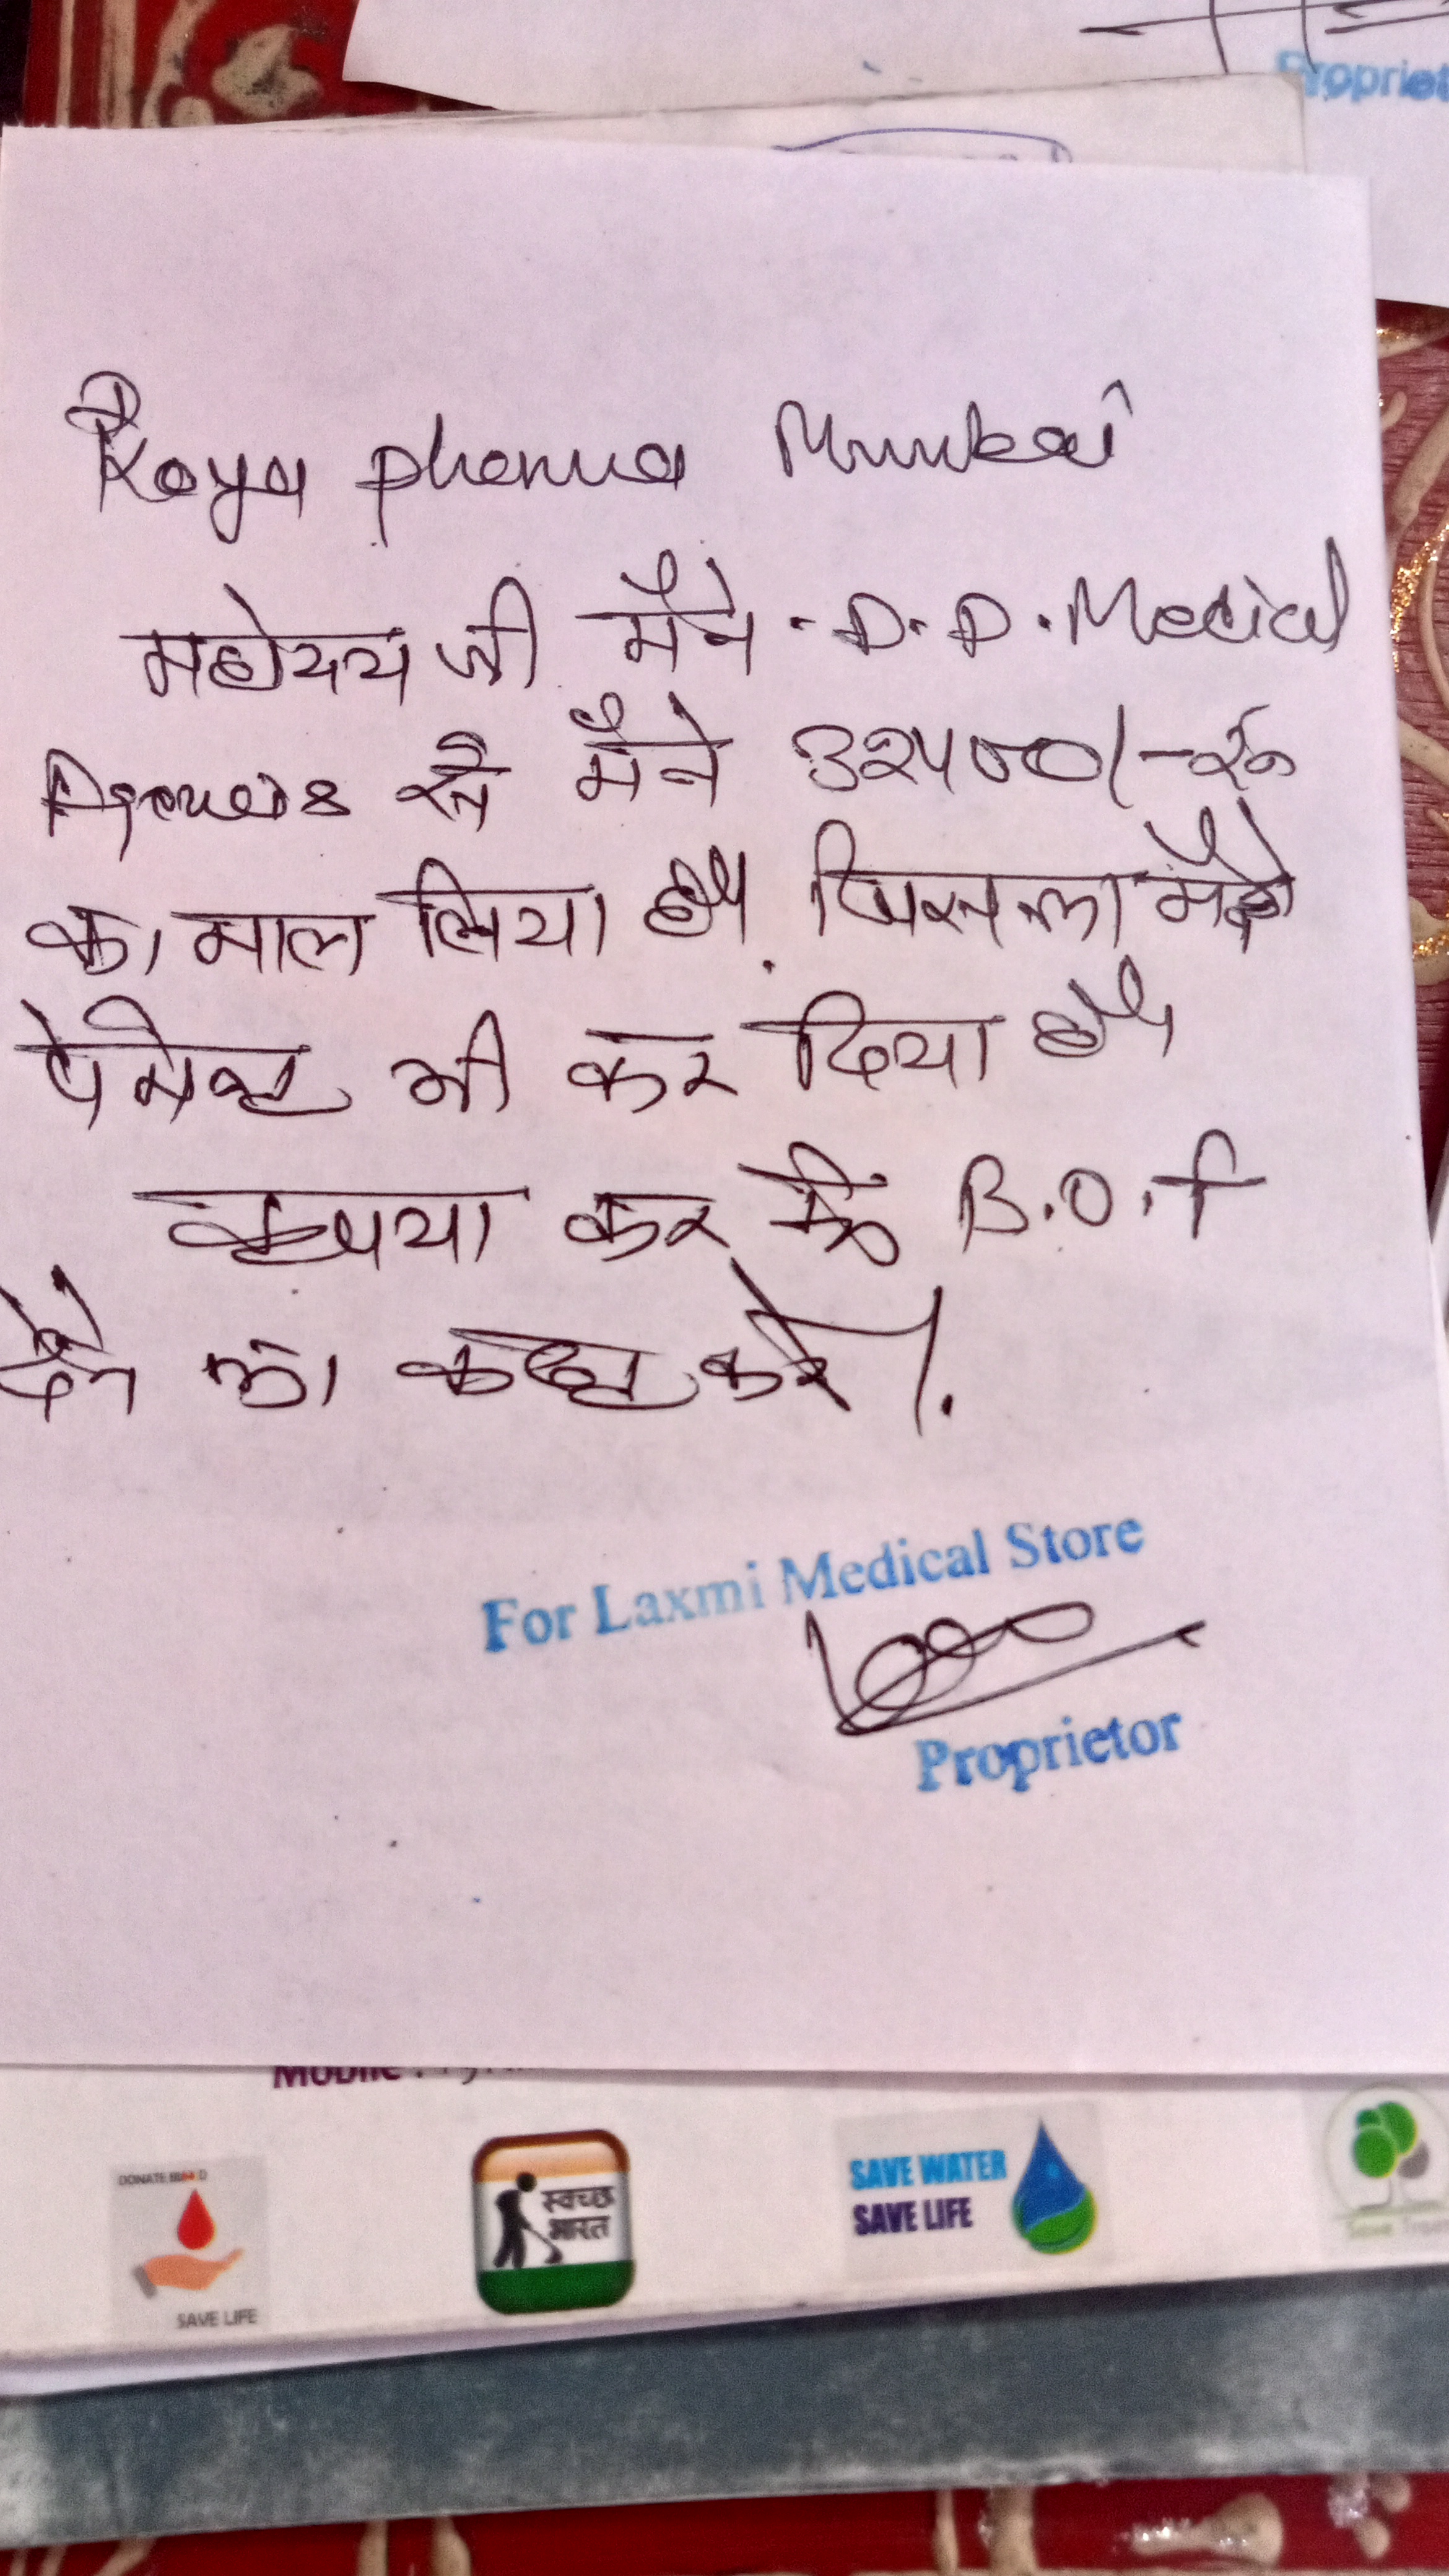 Propriet
Raya pharma Mumbai
महोदय जी मैने D.D. Medical
Agencies से मैने 32500/- रु
का माल लिया है जिसका मैने
पेमेन्ट भी कर दिया है
कृपया कर के B.O.f
देने का कष्ट करे।.
For Laxmi Medical Store
Proprietor
Mobile :
DONATE BLOOD
SAVE LIFE
स्वच्छ
भारत
SAVE WATER
SAVE LIFE